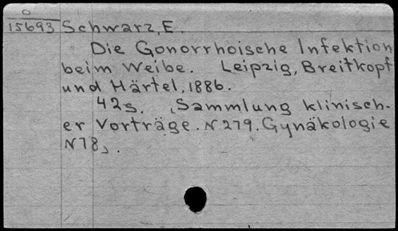 O
15693 Schwarz, E.
Die Gonorrhoische Infektion
beim Weibe. Leipzig, Breitkopf
und Härtel, 1886.
42s. (Sammlung klinisch-
er Vorträge. N 279. Gynäkologie
N 78).